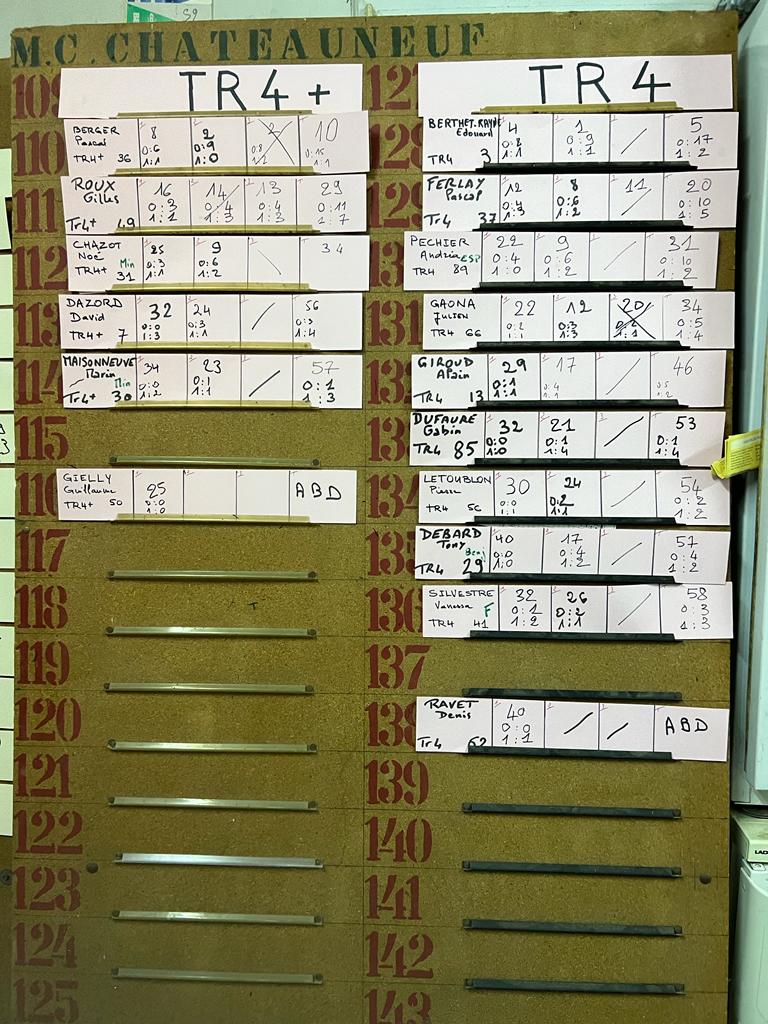 M.C. CHATEAUNEUF
109
TR4+
110
BERGER
Pascal
TR4+ 36
8
0:6
1:1
2
0:9
1:0
10
111
ROUX
Gilles
Tr4+ 49
16
0:3
1:1
14
0:4
1:3
13
0:4
1:3
29
0:11
1:7
112
CHAZOT
Noé
Min
TR4+ 31
25
0:3
1:1
9
0:6
1:2
34
113
DAZORD
David
TR4+ 7
32
0:0
1:3
24
0:3
1:1
56
0:3
1:4
114
MAISONNEUVE
Marin
Min
Tr4+ 30
34
0:0
1:2
23
0:1
1:1
57
0:1
1:3
115
GIELLY
Guillaume
TR4+ 50
25
0:0
1:0
ABD
117
118
119
120
121
122
123
124
125
TR4
128
BERTHET-RAYNE
Edouard
TR4 3
4
0:8
1:1
1
0:9
1:1
5
0:17
1:2
129
FERLAY
Pascal
Tr4 37
12
0:4
1:3
8
0:6
1:2
11
20
0:10
1:5
PECHIER
ESP
TR4 89
22
0:4
1:0
9
0:6
1:2
31
0:10
1:2
131
GAONA
Julien
TR4 66
22
0:2
1:1
12
0:3
1:3
20
34
0:5
1:4
GIROUD
Alain
TR4 13
29
0:1
1:1
17
0:4
1:1
46
DUFAURE
Gabin
TR4 85
32
0:0
1:0
21
0:1
1:4
53
0:1
1:4
134
LETOUBLON
Pierre
TR4
30
0:0
1:1
24
0:2
1:1
54
0:2
1:2
135
DEBARD
Tony
Benj
TR4 29
40
0:0
1:0
17
0:4
1:2
57
0:4
1:2
136
SILVESTRE
Vanessa F
TR4 41
32
0:1
1:2
26
0:2
1:1
58
0:3
1:3
137
138
RAVET
Denis
Tr4 62
40
0:0
1:1
ABD
139
140
141
142
143